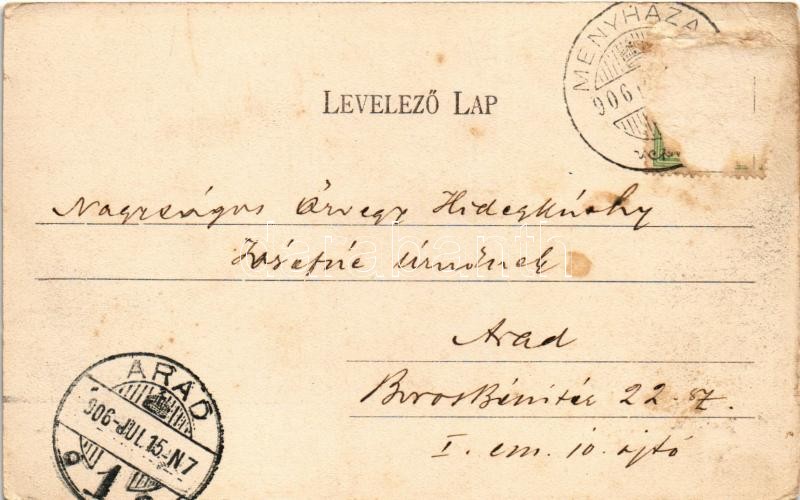 LEVELEZŐ LAP
MENYHÁZA
906
Nagyságos Özvegy Hidegkúthy
Józsefné úrnőnek
Arad
Boros Béni tér 22. sz.
I. em. 10. ajtó
ARAD
906-JUL.15-N7
1
darabanth.com